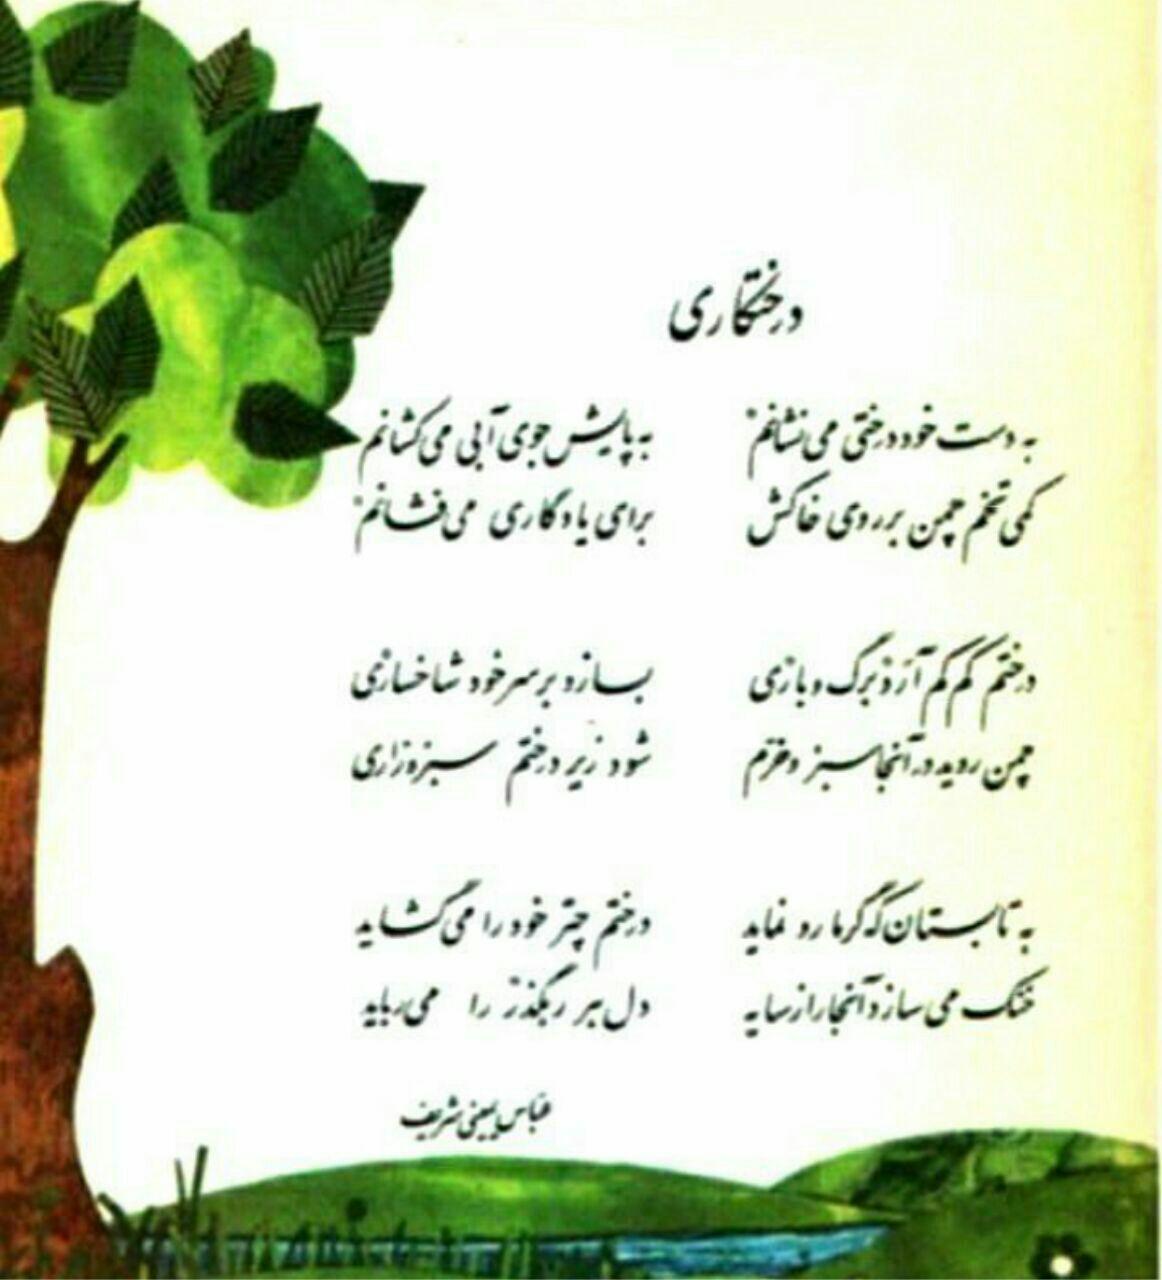 درختکاری
به دست خود درختی می نشانم به پایش جوی آبی می کشانم
کمی تخم چمن بر روی خاکش برای یادگاری می فشانم
درختم کم کم آرد برگ و باری بسازد بر سر خود شاخساری
چمن روید در آنجا سبز و خرم شود زیر درختم سبزه زاری
به تابستان که گرما رو نماید درختم چتر خود را می گشاید
خنک می سازد آنجا را ز سایه دل هر رهگذر را می رباید
عباس یمینی شریف